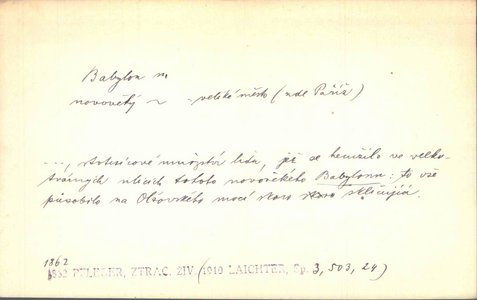 Babylon m
novověký ~ - veliké město (zde Paříž)
..., statisícové množství lidu, jež se hemžilo ve velko-
tvárných ulicích tohoto novověkého Babylonu: to vše
působilo na Olšovského mocí skoro skličující.
1862
1862 PFLEGER, ZTRAC. ŽIV. (1910 LAICHTER, Sp. 3, 503, 24)